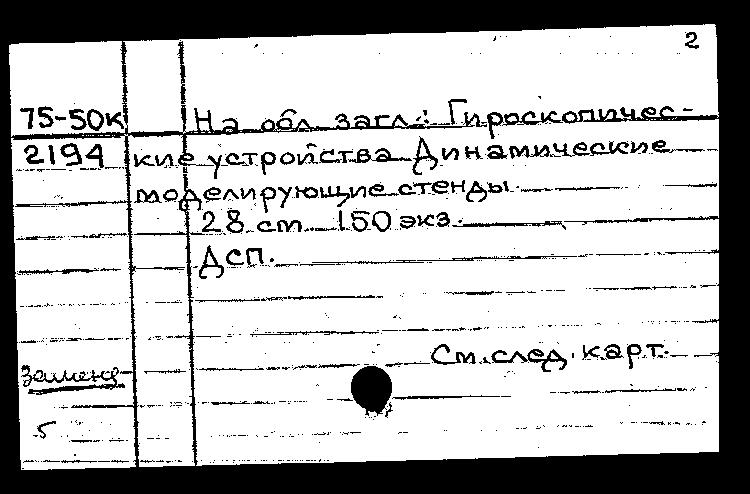 2
75-50к На обл. загл.: Гироскопичес-
2194 кие устройства Динамические
моделирующие стенды.
28 ст 150 экз.
Дсп.
См. след. карт.
5